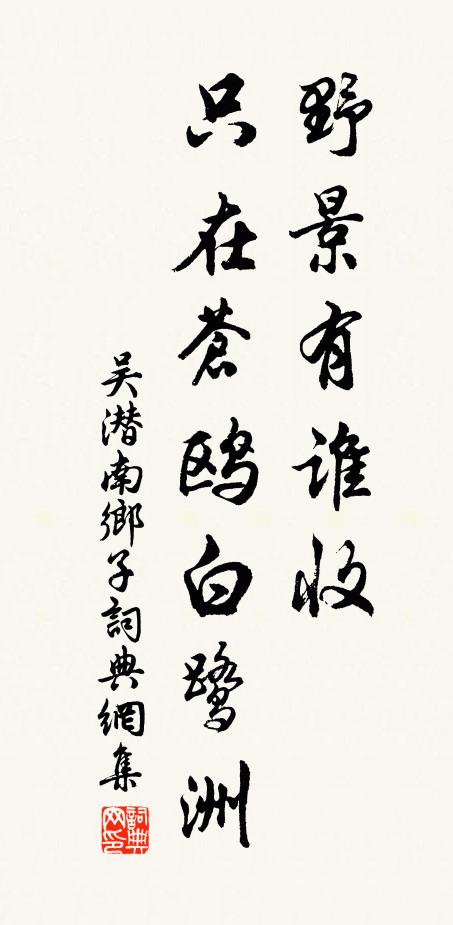 野景有谁收
只在苍鸥白鹭洲
吴潜南鄉子詞典網集
詞典网印